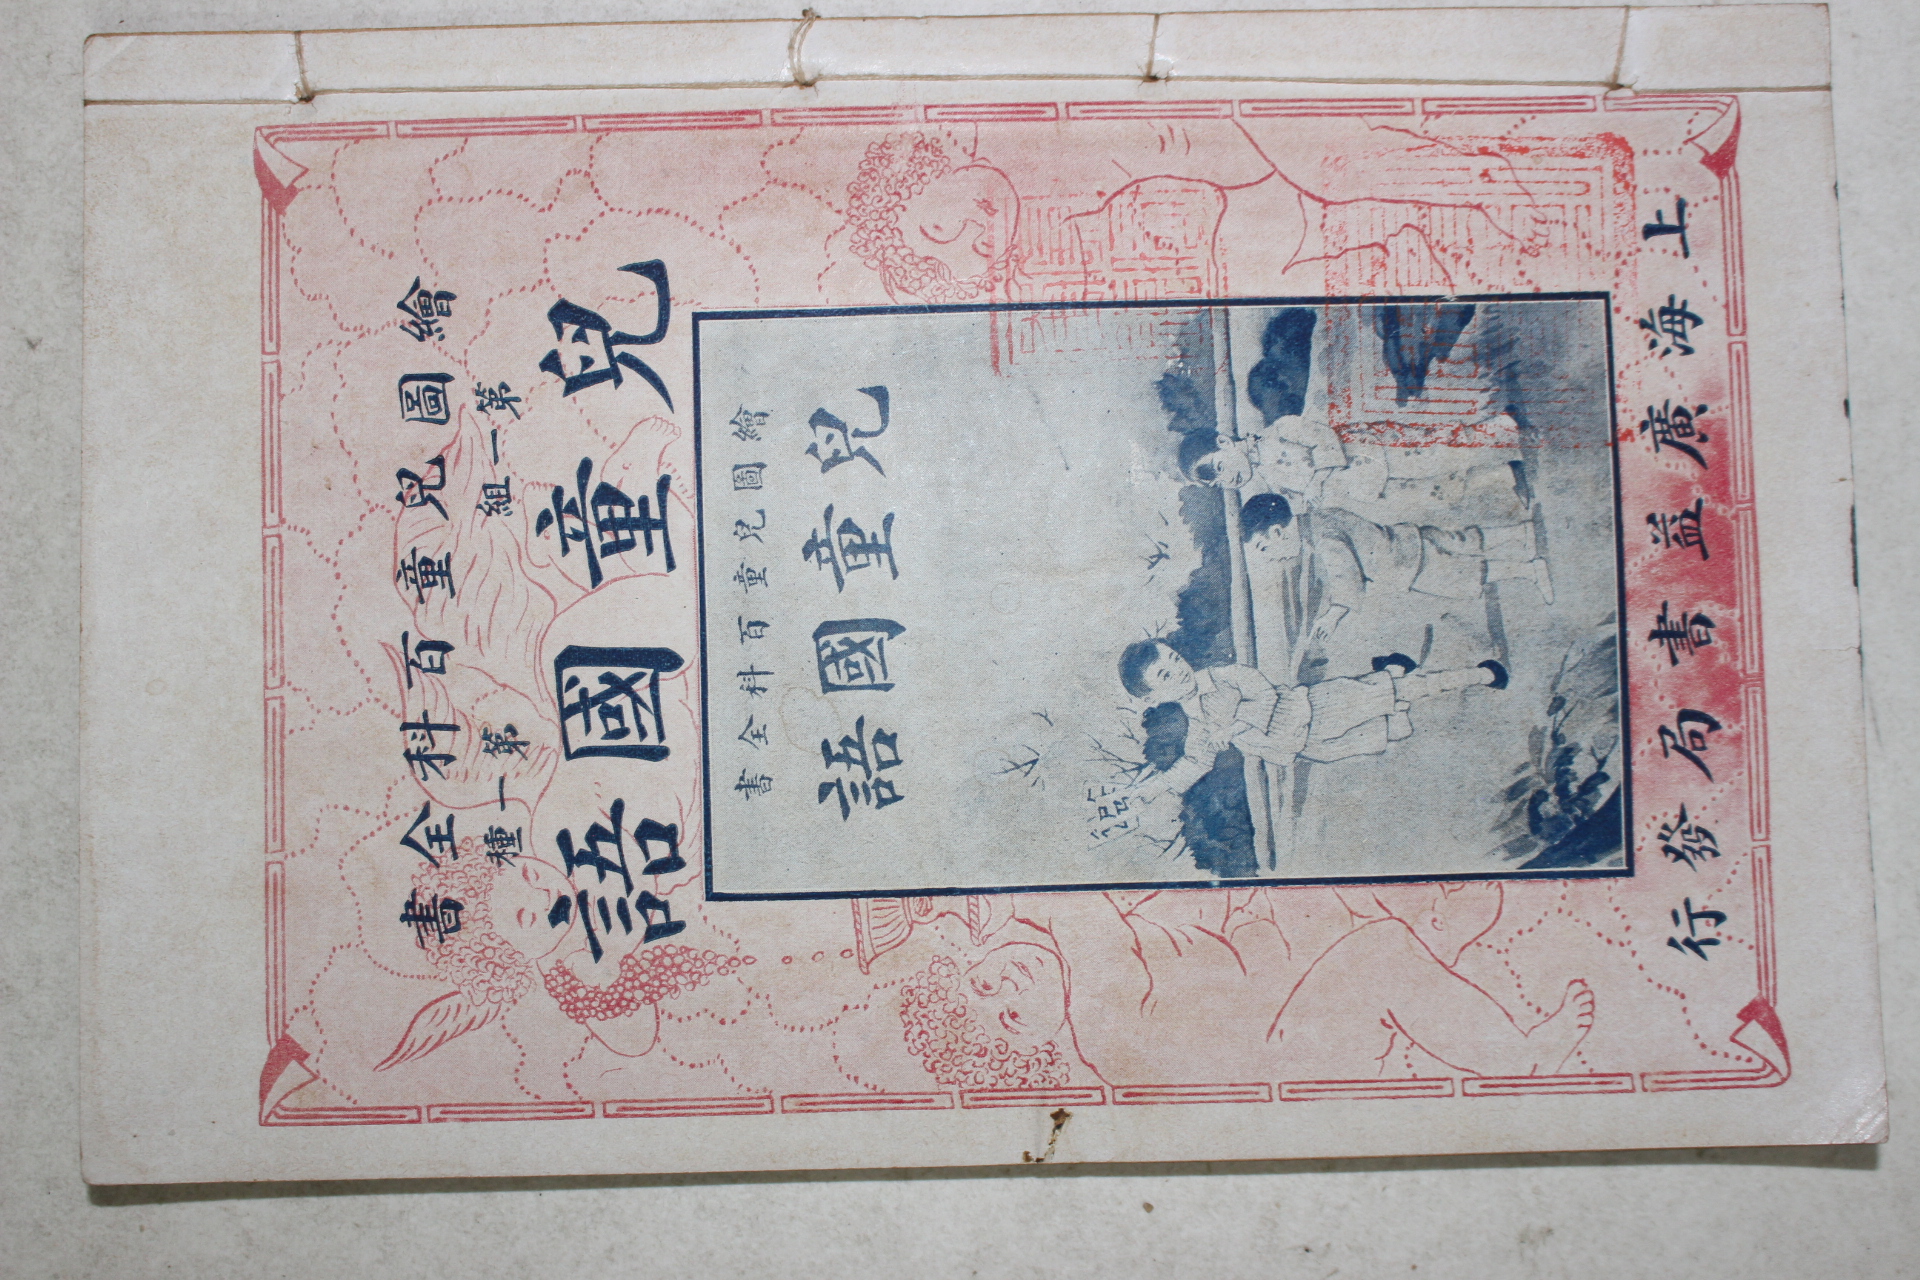 繪圖兒童百科全書
第一組 第一種
兒童國語
繪圖兒童百科全書
兒童國語
上海廣益書局發行